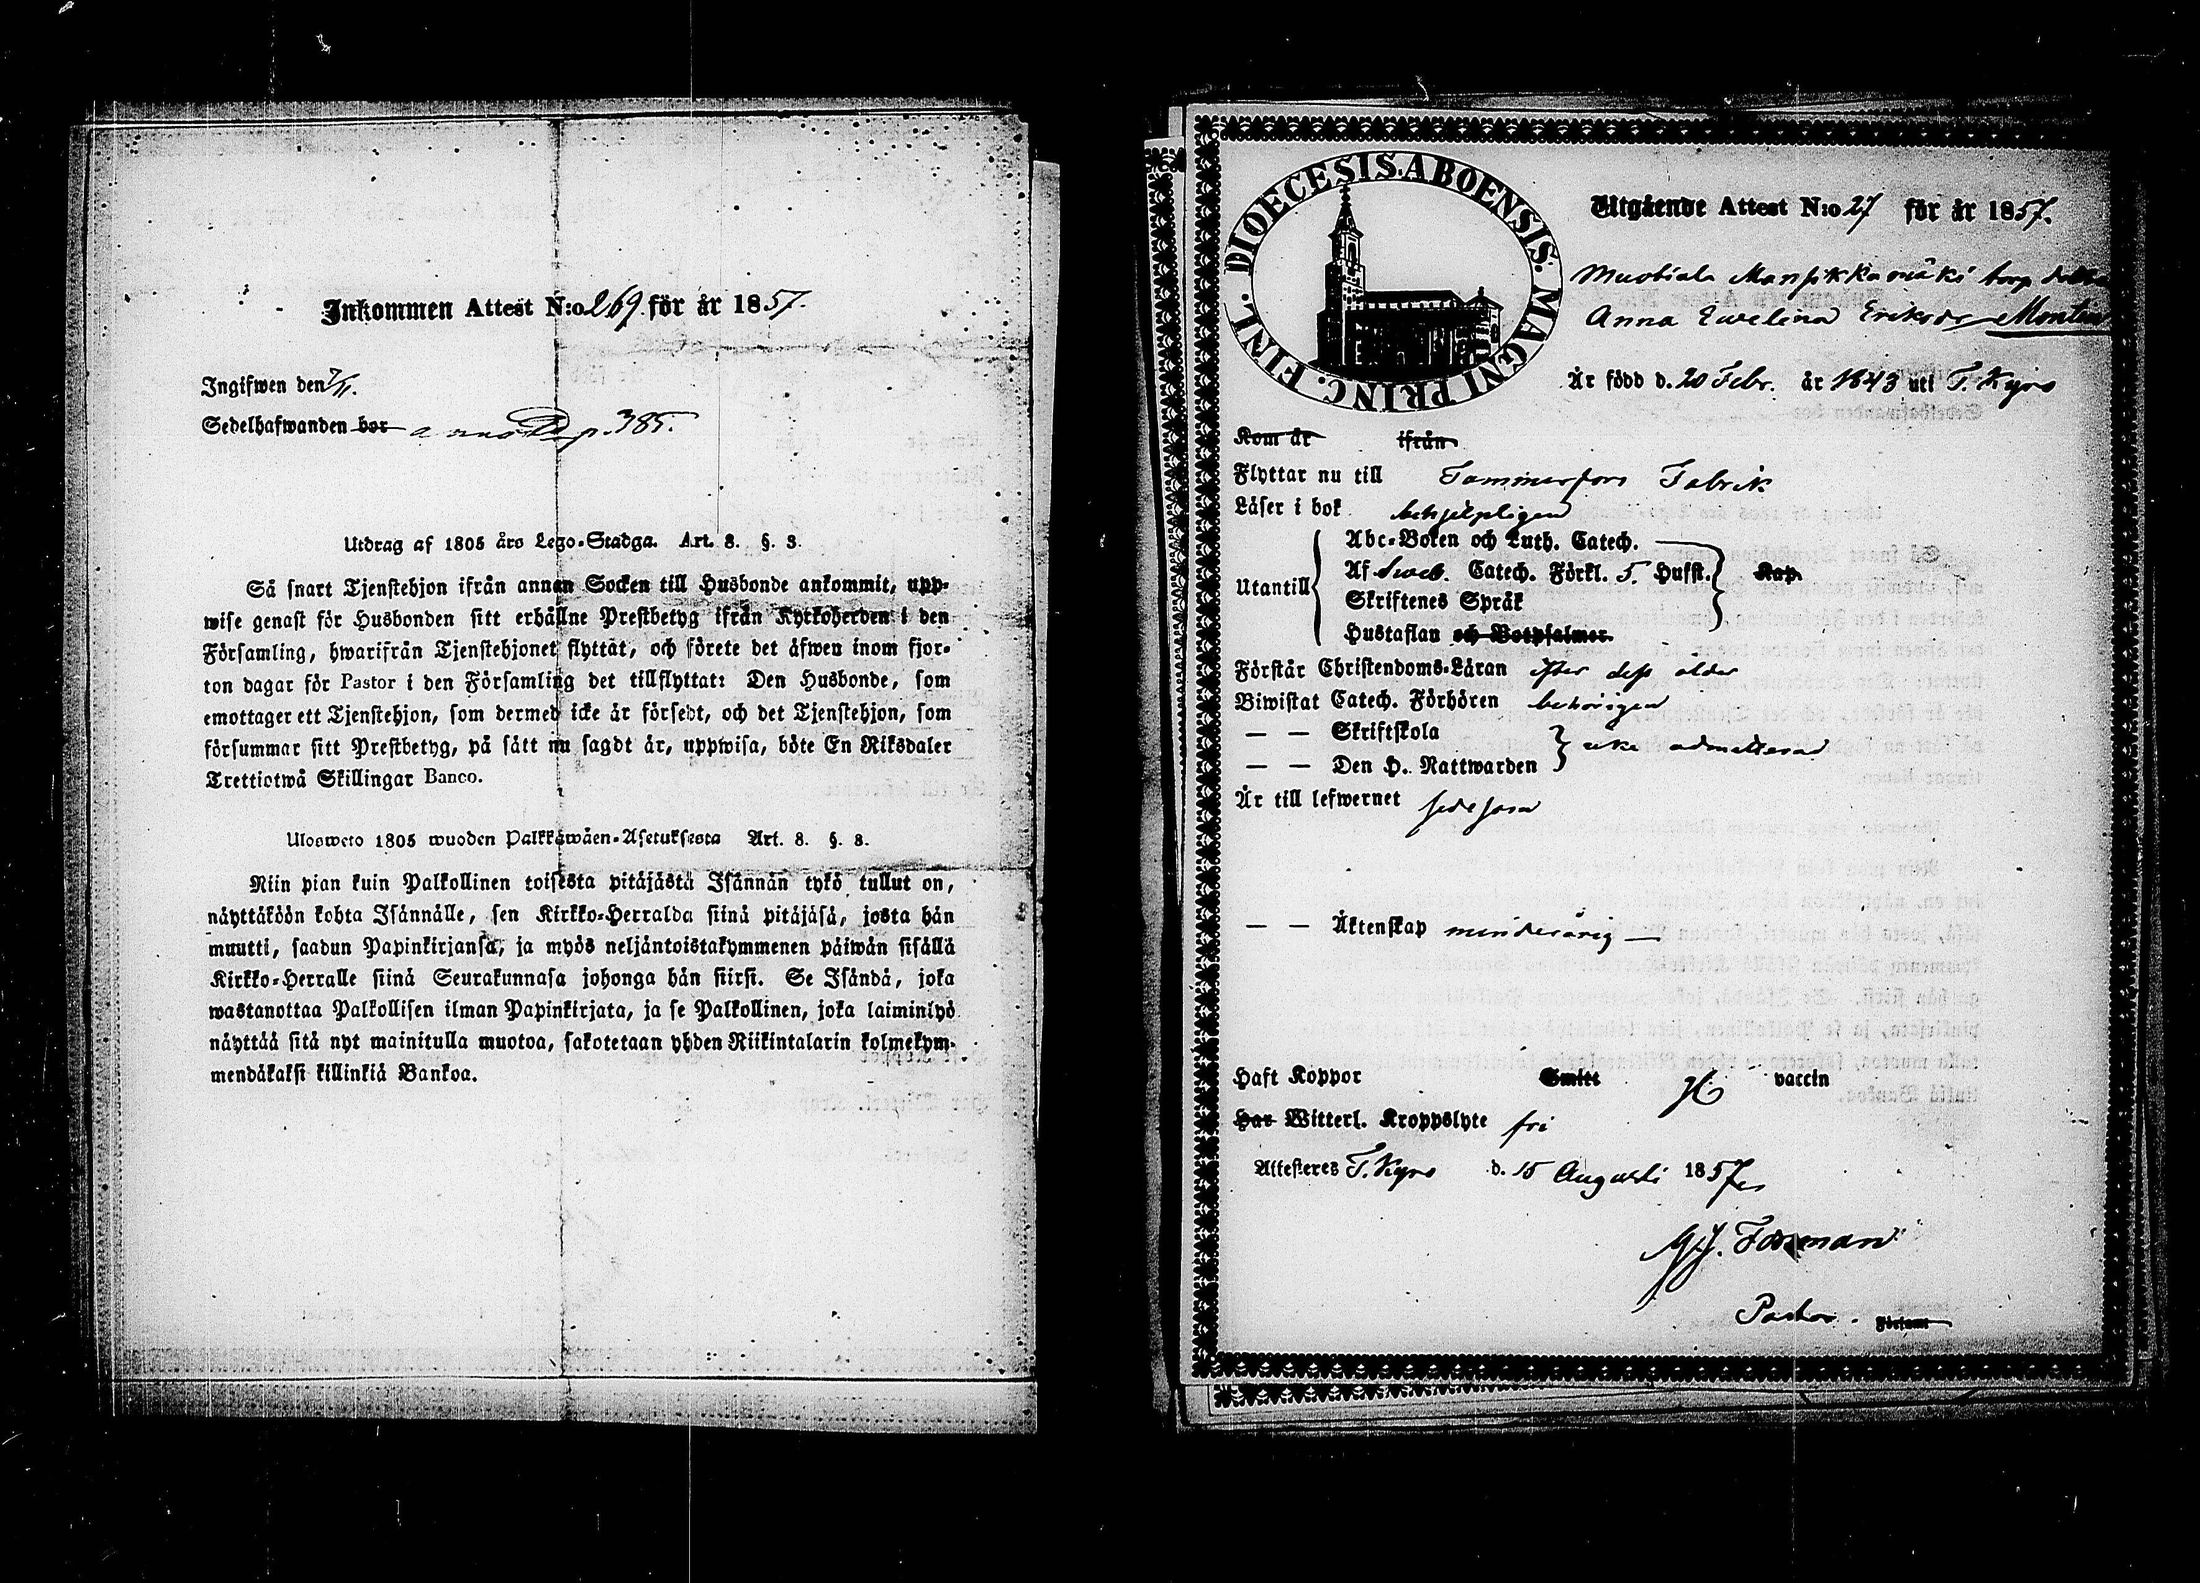 Inkommen Attest N:o 269 för år 1857.
Ingifwen den 7/11.
Sedelhafwanden bor annot. p. 385.
Utdrag af 1805 års Lego-Stadga. Art. 8. §. 3.
Så snart Tjenstehjon ifrån annan Socken till Husbonde ankommit, upp-
wise genast för Husbonden sitt erhållne Prestbetyg ifrån Kyrkoherden i den
Församling, hwarifrån Tjenstehjonet flyttat, och förete det äfwen inom fjor-
ton dagar för Pastor i den Församling det tillflyttat: Den Husbonde, som
emottager ett Tjenstehjon, som dermed icke är försedt, och det Tjenstehjon, som
försummar sitt Prestbetyg, på sätt nu sagdt är, uppwisa, böte En Riksdaler
Trettiotwå Skillingar Banco.
Ulosweto 1805 wuoden Palkkawäen-Asetuksesta Art. 8. §. 3.
Niin pian kuin Palkollinen toisesta pitäjästä Isännän tykö tullut on,
näyttäköön kohta Isännälle, sen Kirkko-Herralda siinä pitäjäsä, josta hän
muutti, saadun Papinkirjansa, ja myös neljäntoistakymmenen päiwän sisällä
Kirkko-Herralle siinä Seurakunnasa johonga hän siirsi. Se Isändä, joka
wastanottaa Palkollisen ilman Papinkirjata, ja se Palkollinen, joka laiminlyö
näyttää sitä nyt mainitulla muotoa, sakotetaan yhden Riikintalarin kolmekym-
mendäkaksi killinkiä Bankoa.
DIOECESIS. ABOENSIS. MAGNI PRINC. FINL.
Utgående Attest N:o 27 för år 1857.
Mansikkamäki torp
Anna Ewelina Eriksdr
Är född d. 20 Febr. år 1843 uti T. Kyro
Kom år ifrån
Flyttar nu till Tammerfors Fabrik
Läser i bok behjelpligen
Abc-Boken och Luth. Catech.
Utantill Af Sveb. Catech. Förkl. 5. Hufst. Kap.
Skriftenes Språk
Hustaflan och Botpsalmer.
Förstår Christendoms-Läran efter dess ålder
Biwistat Catech. Förhören behörigen
— — Skriftskola
— — Den H. Nattwarden icke admitterad
Är till lefwernet sedesam
— — Äktenskap minderårig —
Haft Koppor Smitt vaccin
Har Witterl. Kroppslyte fri
Attesteres T. Kyro d. 15 Augusti 1857
Forsman
Pastor. Församl